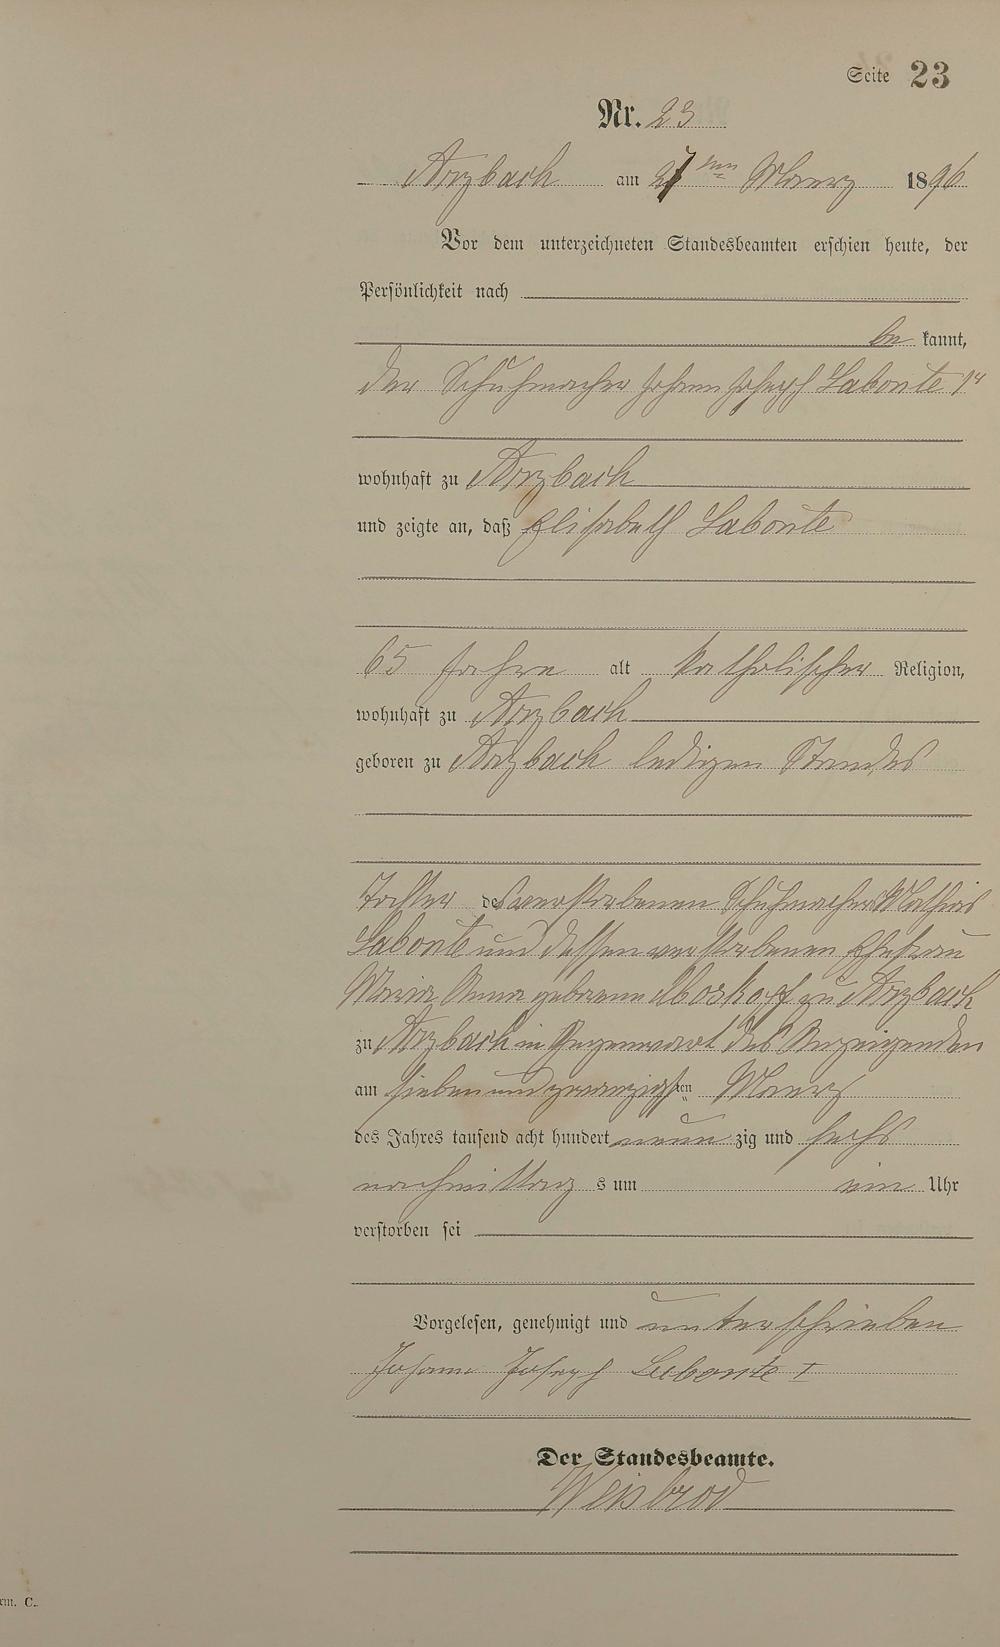 Seite 23
Nr. 23
Arzbach am 27ten Maerz 1896
Vor dem unterzeichneten Standesbeamten erschien heute, der
Persönlichkeit nach
be kannt,
der Schuhmacher Johann Joseph Labonte
wohnhaft zu Arzbach
und zeigte an, daß Elisabeth Labonte
65 Jahre alt katholischer Religion,
wohnhaft zu Arzbach
geboren zu Arzbach ledigen Standes
Tochter des verstorbenen Schuhmachers Mathias
Labonte und dessen verstorbenen Ehefrau
Maria Anna geborene zu Arzbach
zu Arzbach in Gegenwart des Anzeigenden
am siebenundzwanzigsten Maerz
des Jahres tausend acht hundert neun zig und sechs
nachmittag s um ein Uhr
verstorben sei
Vorgelesen, genehmigt und unterschrieben
Johann Joseph Labonte I
Der Standesbeamte.
Weisbrod
rm. C.